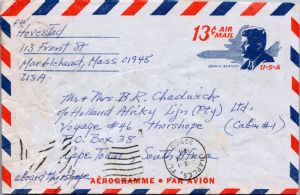 Hovestad
113 Front St
Marblehead, Mass 01945
USA
13¢ AIR
MAIL
JOHN F. KENNEDY
U•S•A
Mr & Mrs. B.R. Chadwick
c/o Holland Afrika Lijn (Pty) Ltd.
Voyage #46 Thorshope (Cabin #1)
P.O. Box 38
Cape Town South Africa
aboard Thorshope
AÉROGRAMME • PAR AVION